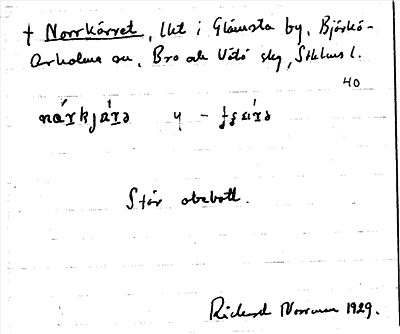 † Norrkärret, lht i Glämsta by, Björkö-
Arholma sn, Bro och Vätö skg, Sthlms l.
40
y -
Står obebott.
Rickard Norrman 1929.